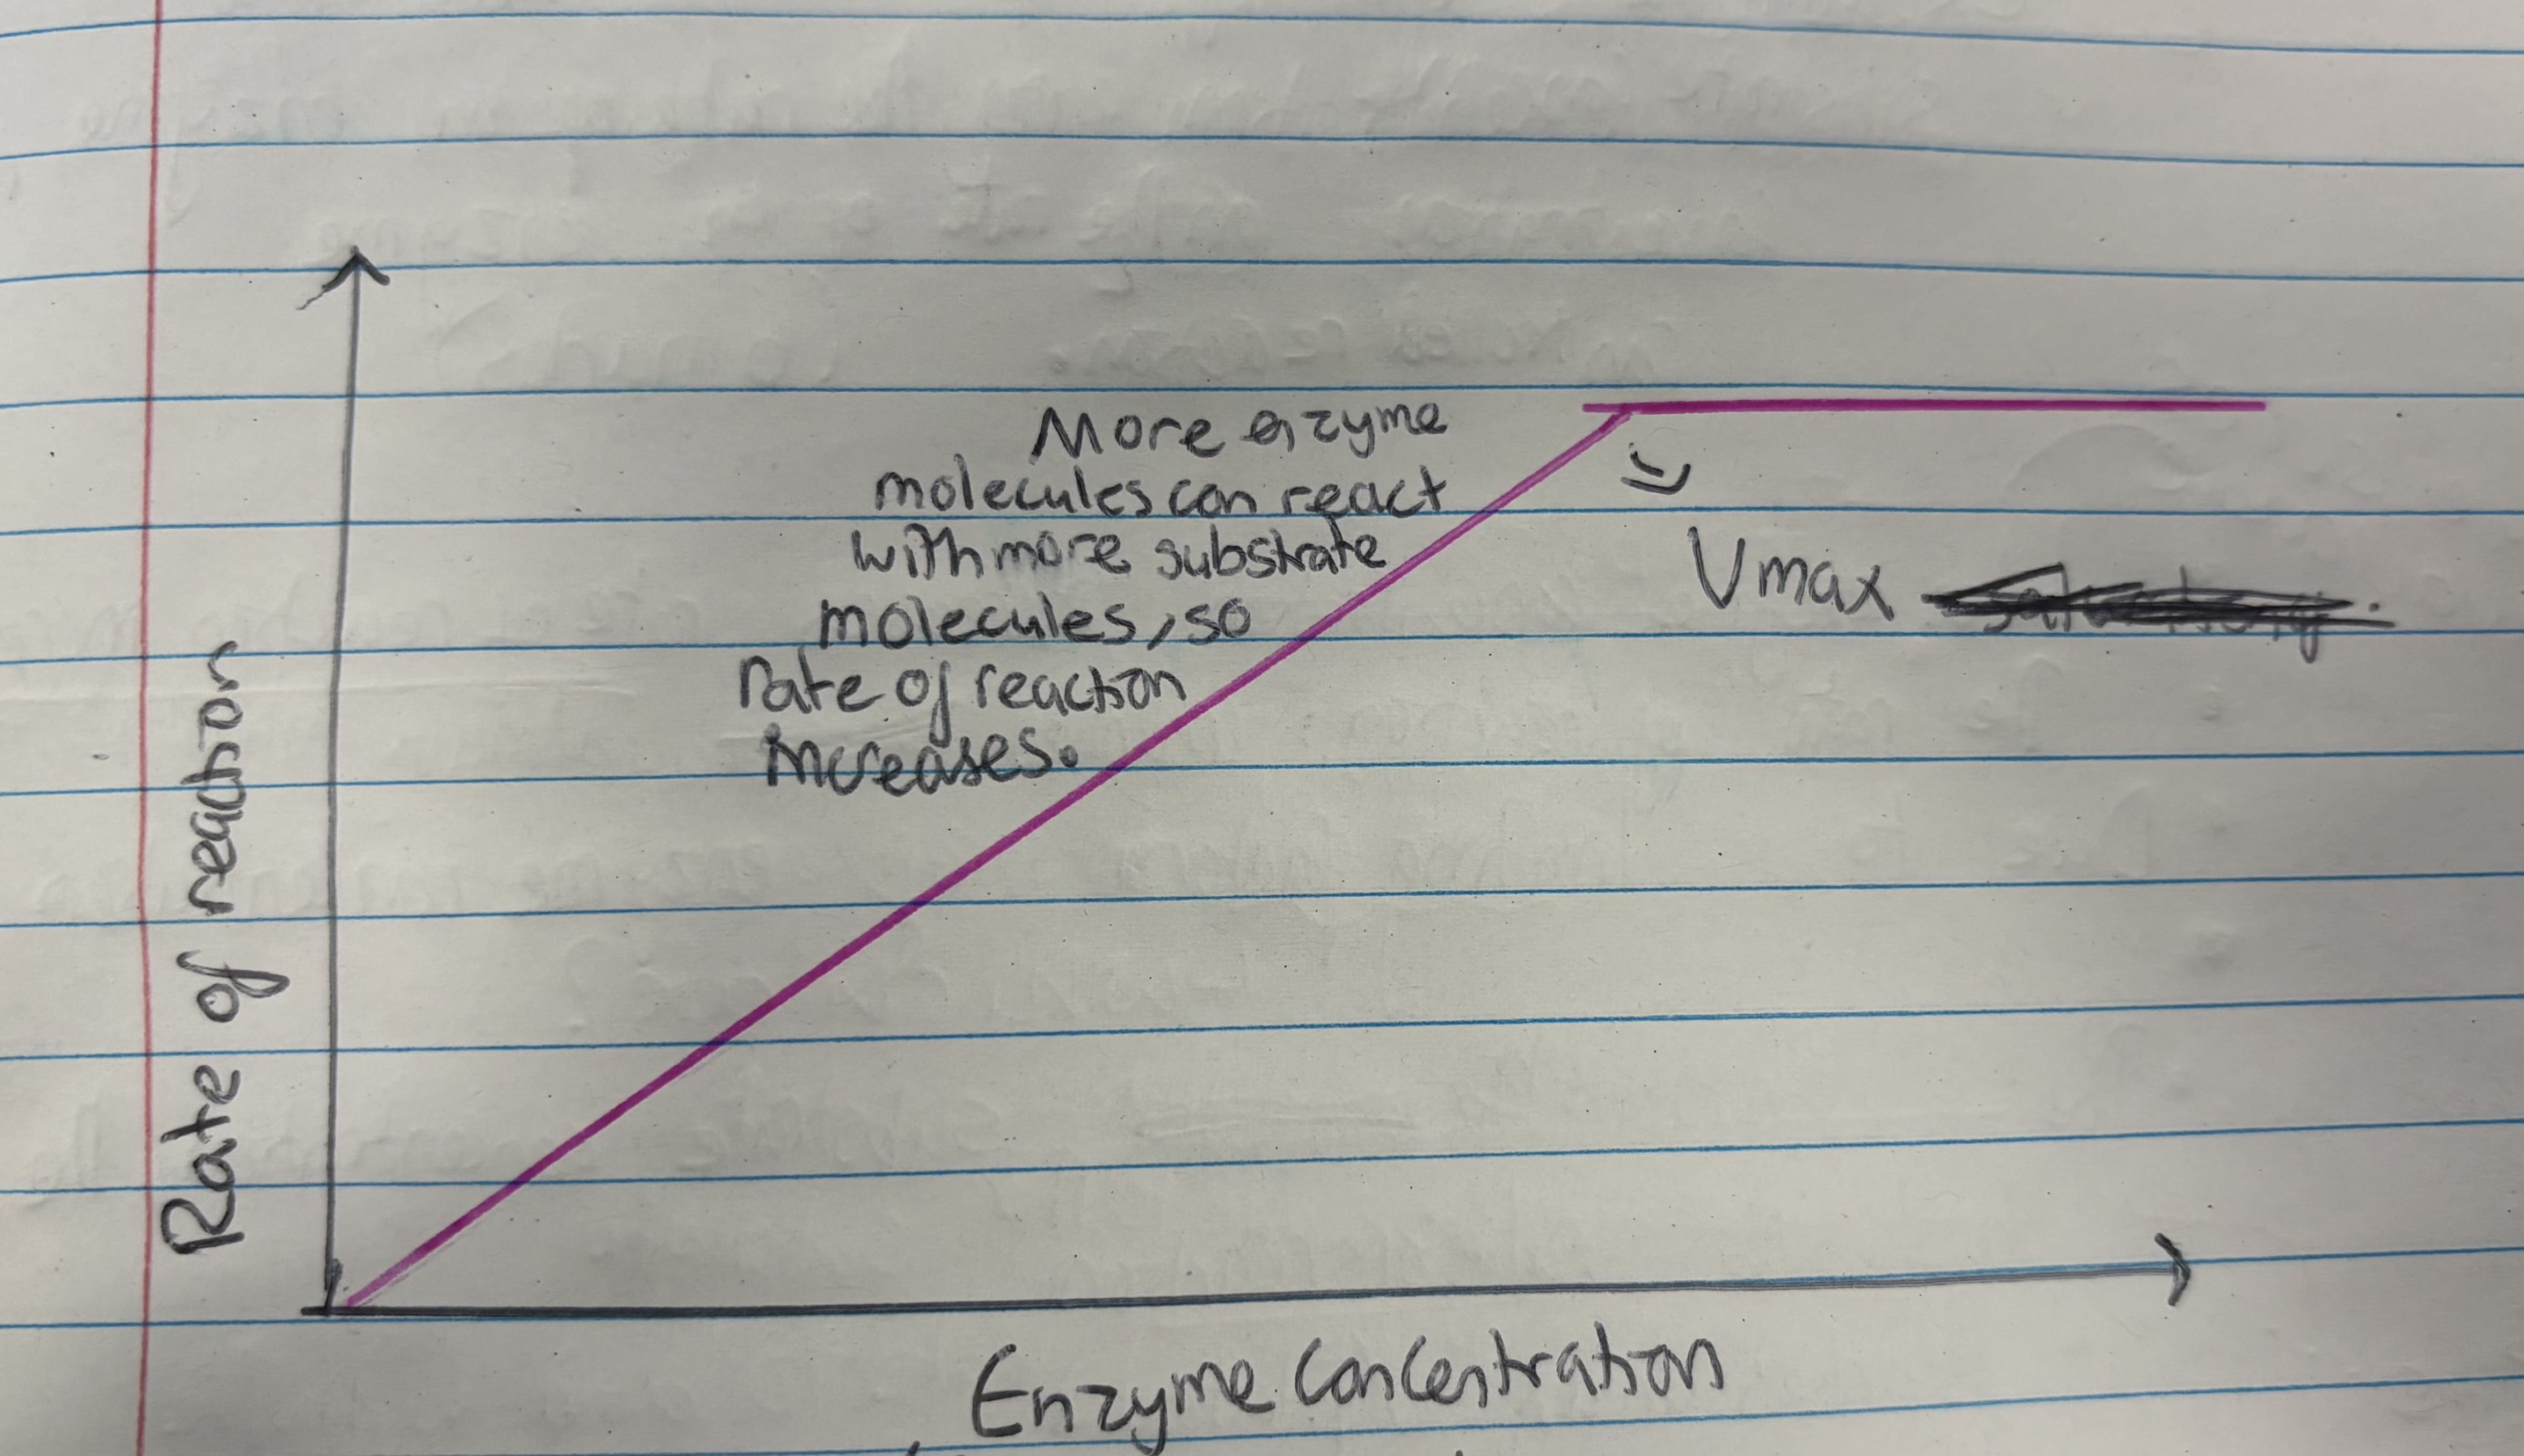 More enzyme
molecules can react
with more substrate
molecules, so
rate of reaction
increases.
Vmax
Rate of reaction
Enzyme concentration